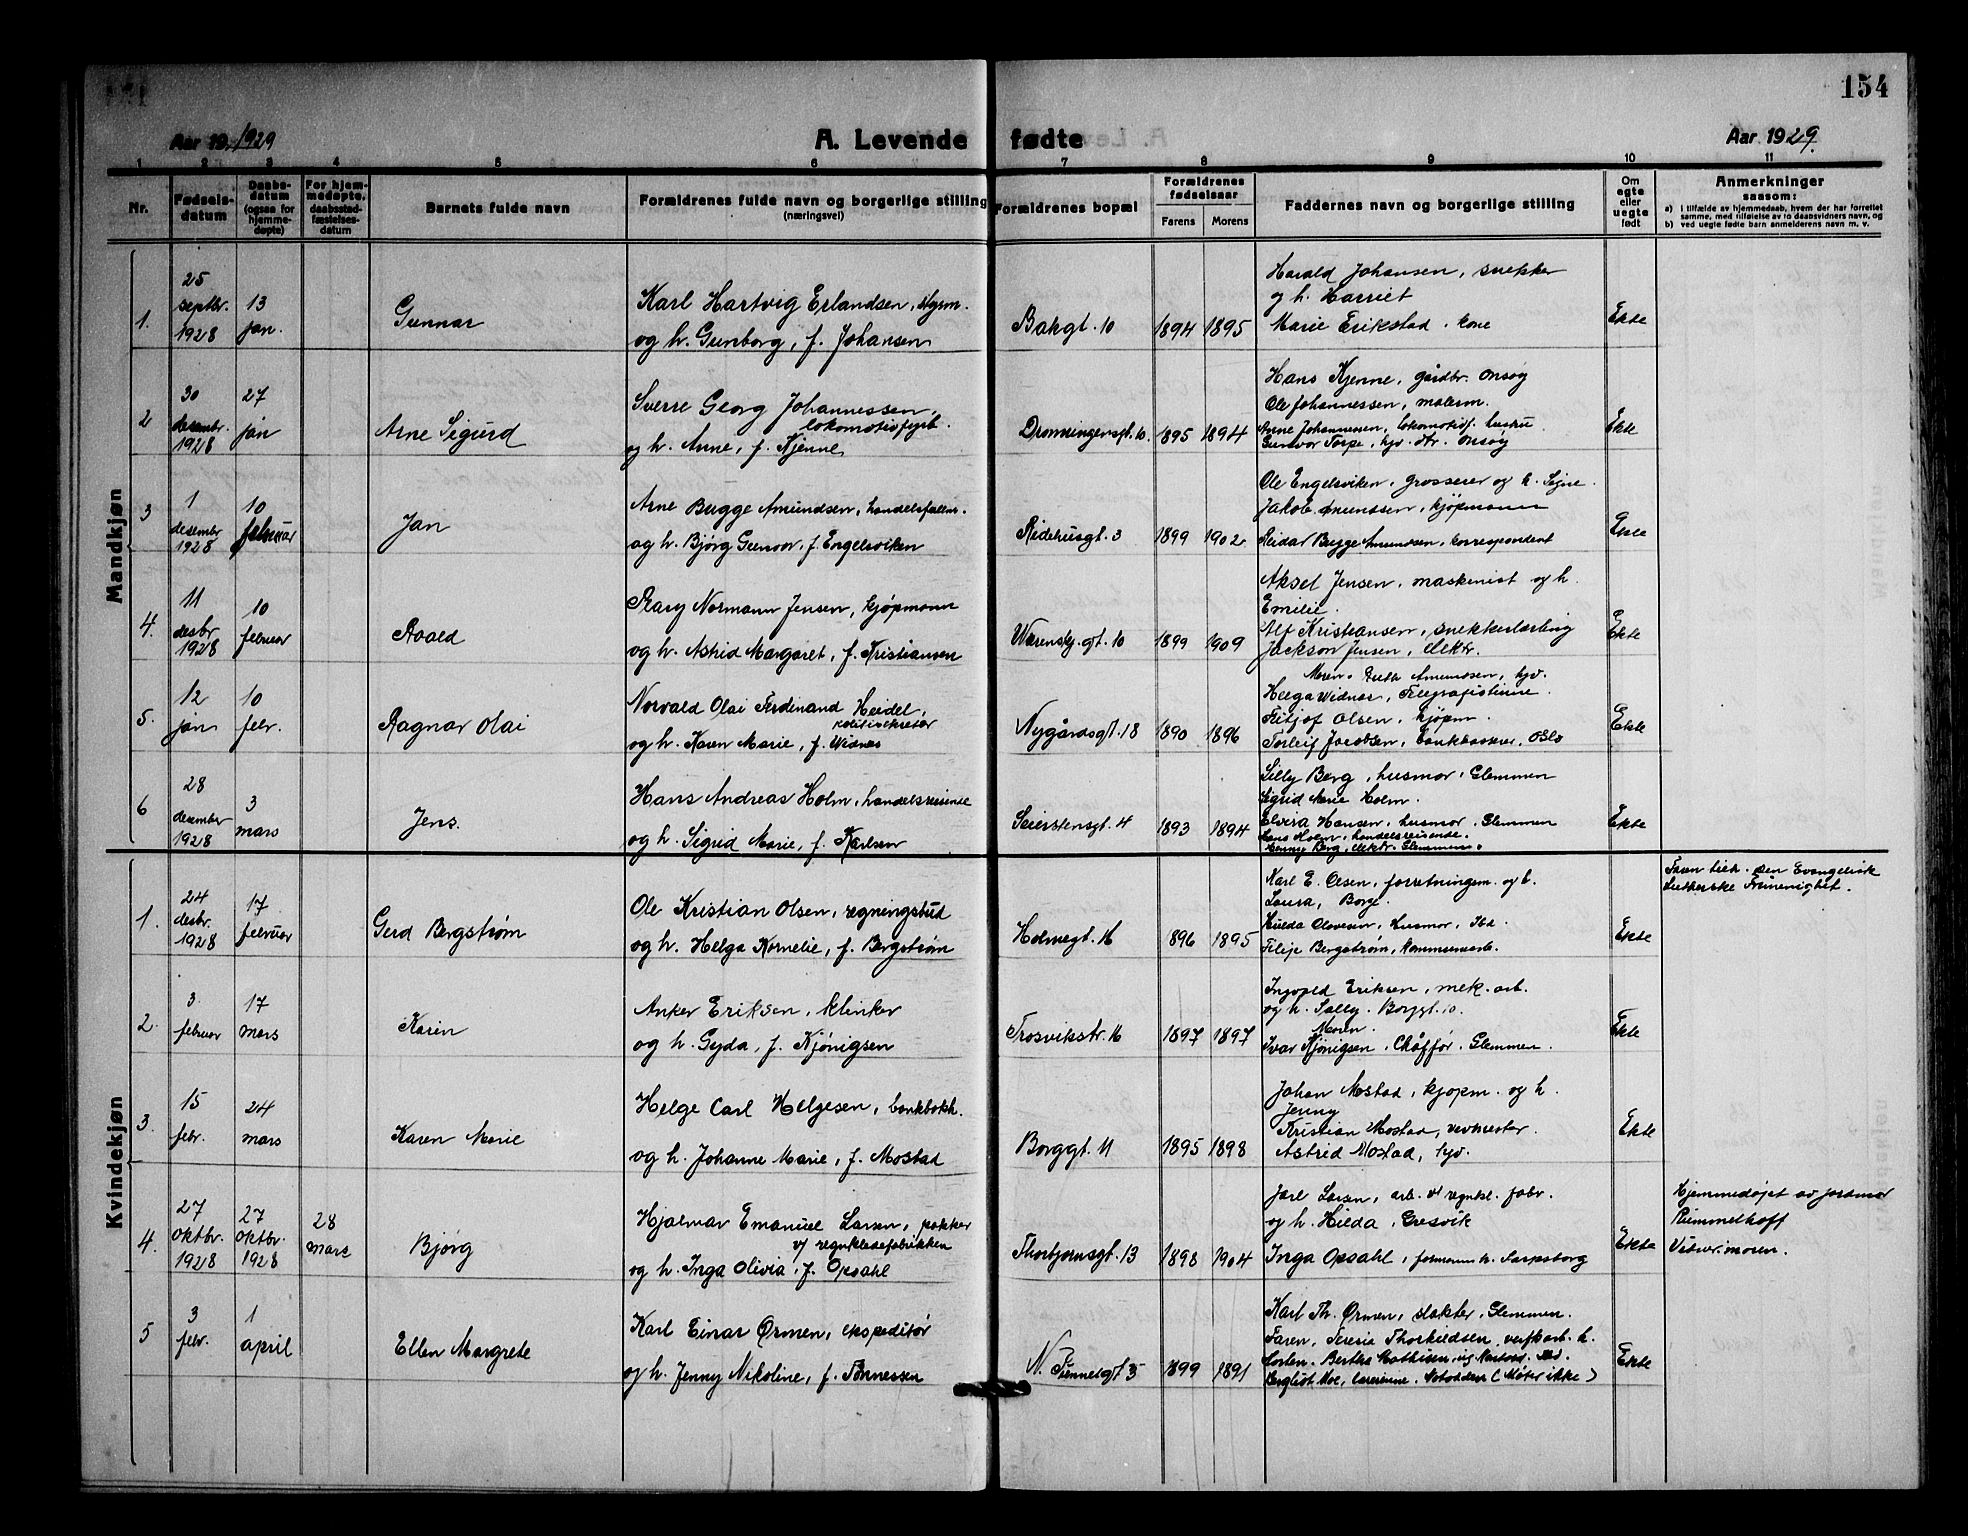 154
Aar 19 1929
A. Levende fødte
Aar 1929.
1 2 3 4 5 6 7 8 9 10 11
Nr.
Fødsels-
datum
Daabs-
datum
(ogsaa for
hjemme-
døpte)
For hjem-
medøpte,
daabsstad-
fæstelses-
datum
Barnets fulde navn
Forældrenes fulde navn og borgerlige stilling
(næringsvei)
Forældrenes bopæl
Forældrenes
fødselsaar
Farens Morens
Faddernes navn og borgerlige stilling
Om
egte
eller
uegte
født
Anmerkninger
saasom:
a) i tilfælde av hjemmedaab, hvem der har forrettet
samme, med tilføielse av to daabsvidners navn, og
b) ved uegte fødte barn anmelderens navn m. v.
Mandkjøn
1.
25
septbr.
1928
13
jan.
Gunnar
Karl Hartvig Erlandsen, styrm.
og h. Gunborg, f. Johansen
Bakgt. 10
1894 1895
Harald Johansen, snekker
og h. Harriet
Marie Erikstad, kone
Ekte
2
30
desembr.
1928
27
jan
Arne Sigurd
Sverre Georg Johannessen,
lokomotivfyrb.
og h. Anne, f. Kjenne
Dronningensgt. 10.
1895 1894
Hans Kjenne, gårdbr. Onsøy
Ole Johannessen, malerm.
Arne Johannessen, lokomotivf. hustru
Gunvor Torpe, hjv. dtr. Onsøy
Ekte
3
1
desembr
1928
10
februar
Jan
Arne Bugge Amundsen, handelsfullm.
og h. Bjørg Gunvor, f. Engelsviken
Ridehusgt. 3
1899 1902
Ole Engelsviken, grosserer og h. Signe.
Jakob Amundsen, kjøpmann
Reidar Bugge Amundsen, korrespondent
Ekte
4.
11
desbr
1928
10
februar
Roald
Rary Normann Jensen, kjøpmann
og h. Astrid Margaret, f. Kristiansen
Wærenskj. gt. 10
1899 1909
Aksel Jensen, maskinist og h.
Emilie.
Alf Kristiansen, snekkerlærling
Jackson Jensen, elektr.
Ekte
5.
12
jan
10
febr.
Ragnar Olai
Norvald Olai Ferdinand Heidel,
politisekretær
og h. Karen Marie, f. Widnes
Nygårdsgt. 18
1890 1896
Moren. Ruth Amundsen, hjv.
Helga Widnes, Telegrafistinne.
Fritjof Olsen, kjøpm.
Torleif Jacobsen, bankkasserer, Oslo
Ekte
6
28
desember
1928
3
mars
Jens.
Hans Andreas Holm, handelsreisende
og h. Sigrid Marie, f. Karlsen
Seierstensgt. 4
1893 1894
Lilly Berg, husmor, Glemmen
Sigrid Marie Holm.
Elvira Hansen, husmor, Glemmen
Hans Holm, handelsreisende.
Henny Berg, elektr. Glemmen.
Ekte
Kvindekjøn
1.
24
desbr.
1928
17
februar
Gerd Bergstrøm
Ole Kristian Olsen, regningsbud
og h. Helga Kornelie, f. Bergstrøm
Holmegt. 16
1896 1895
Karl E. Olsen, forretningsm. og h.
Laura, Borge.
Hulda Olavesen, husmor, Ibd.
Filip Bergstrøm, kommunearb.
Ekte
Faren tilh. den Evangelisk
Lutherske Frimenighet.
2.
3
februar
17
mars
Karin
Anker Eriksen, klinker
og h. Gyda, f. Kjönigsen
Trosvikstr. 16
1897 1897
Ingvald Eriksen, mek. arb.
og h. Sally. Borggt. 10.
Moren.
Ivar Kjönigsen, Chåffør. Glemmen.
Ekte
3.
15
febr.
24
mars
Karen Marie
Helge Carl Helgesen, bankbokh.
og h. Johanne Marie, f. Mostad
Borggt. 11
1895 1898
Johan Mostad, kjøpm. og h.
Jenny
Kristian Mostad, vevmester.
Astrid Mostad, hjv.
Ekte
4.
27
oktbr.
1928
27
oktbr.
1928
28
mars
Bjørg
Hjalmar Emanuel Larsen, pakker
v/ regnklædefabrikken
og h. Inga Olivia, f. Opsahl
Thorbjørnsgt. 13
1898 1904
Jarl Larsen, arb. v/ regnkl. fabr.
og h. Hilda, Gresvik
Inga Opsahl, formanns h. Sarpsborg
Ekte
Hjemmedøpt av jordmor
Rummelhoff
Vidner: moren.
5
3
febr.
1
april
Ellen Margrete
Karl Einar Ørmen, ekspeditør
og h. Jenny Nikoline, f. Tønnessen
1899 1891
Karl Th. Ørmen, slakter, Glemmen.
Faren, Teresie Thorkildsen, verftarb. h.
Bertha Mathisen,
Bergliot Moe, lærerinne. Notodden (Møter ikke)
Ekte